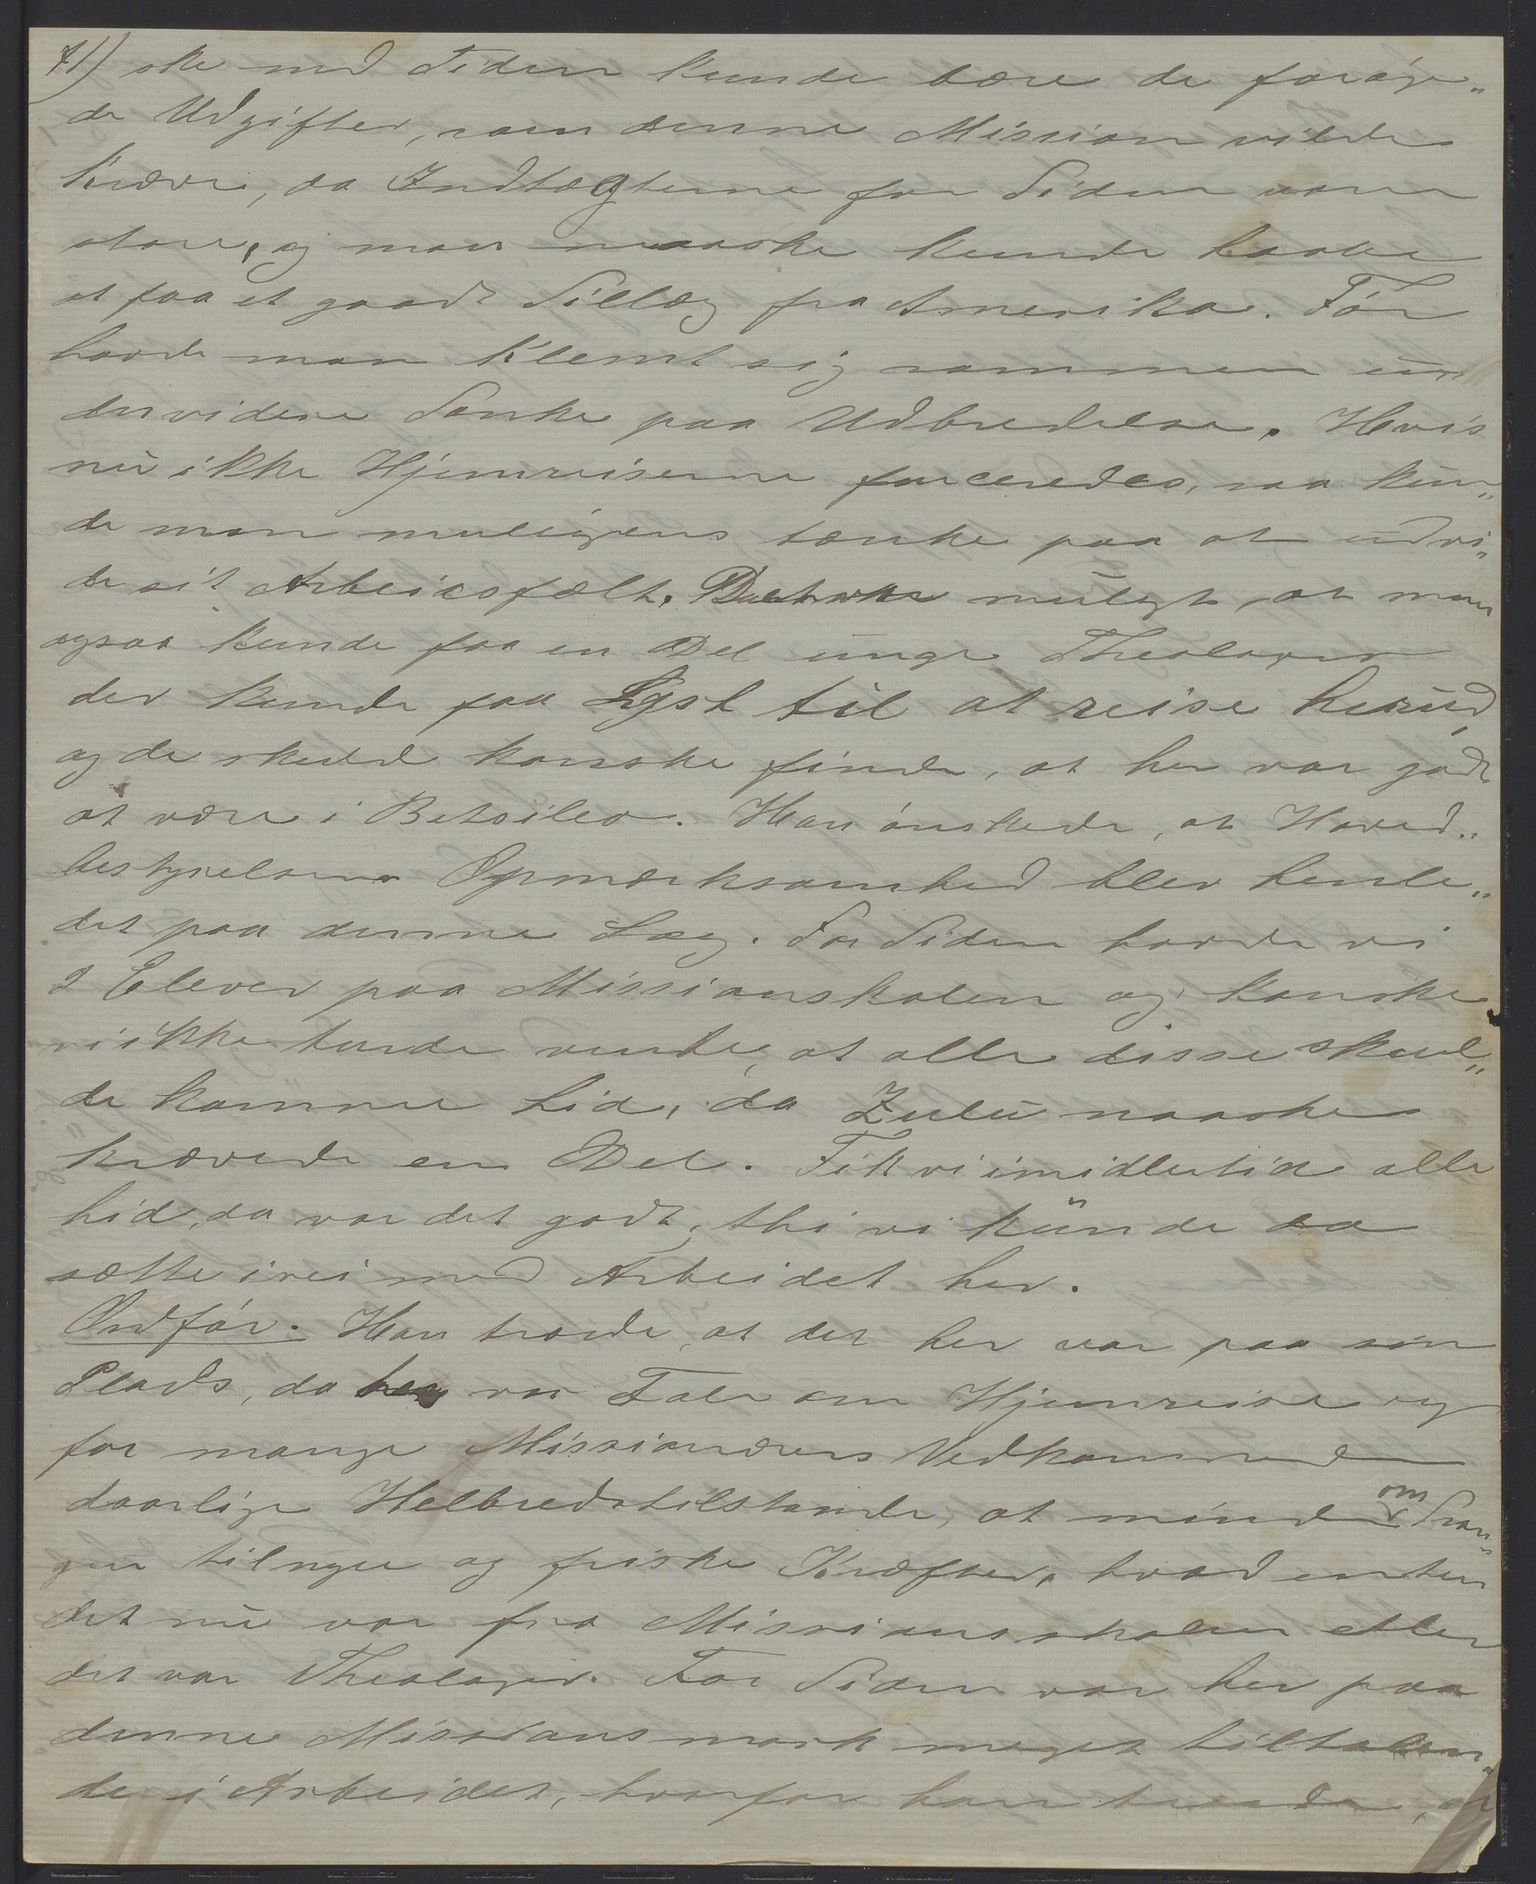 71) ske med Tiden kunde bære de forøge„
de Udgifter, som denne Mission vilde
kræve, da Indtægterne for Tiden vare
store, og man maaske kunde haabe
at faa et godt Tillæg fra Amerika. Før
havde man klemt sig sammen uden
den videre Tanke paa Udbredelse. Hvis
nu ikke Hjemreiserne forceredes, saa kun„
de man muligens tænke paa at udvi„
de sit Arbeidsfelt. Det var muligt, at man
ogsaa kunde faa en Del unge Theologer
der kunde faa Lyst til at reise herud,
og de skulde kanske finde, at her var godt
at være i Betsileo. Han ønskede, at Hoved„
bestyrelsens Opmærksomhed blev henle„
det paa denne Sag. For Tiden havde vi
Elever paa Missionsskolen og kanske
vi ikke turde vente, at alle disse skul„
de komme hid, da Zulu maaske
krævede en Del. Fik vi imidlertid alle
hid, da var det godt, thi vi kunde da
sætte ivei med Arbeidet her.
Ordfør. Han troede, at det her var paa sin
Plads, da her var Tale om Hjemreise og
for mange Missionærers Vedkommende
daarlige Helbredstilstande, at minde om Tran„
gen til nye og friske Kræfter, hvad enten
det nu var fra Missionsskolen eller
det var Theologer. For Tiden var her paa
denne Missionsmark meget tiltalen„
de i Arbeidet, hvorfor han troede, at